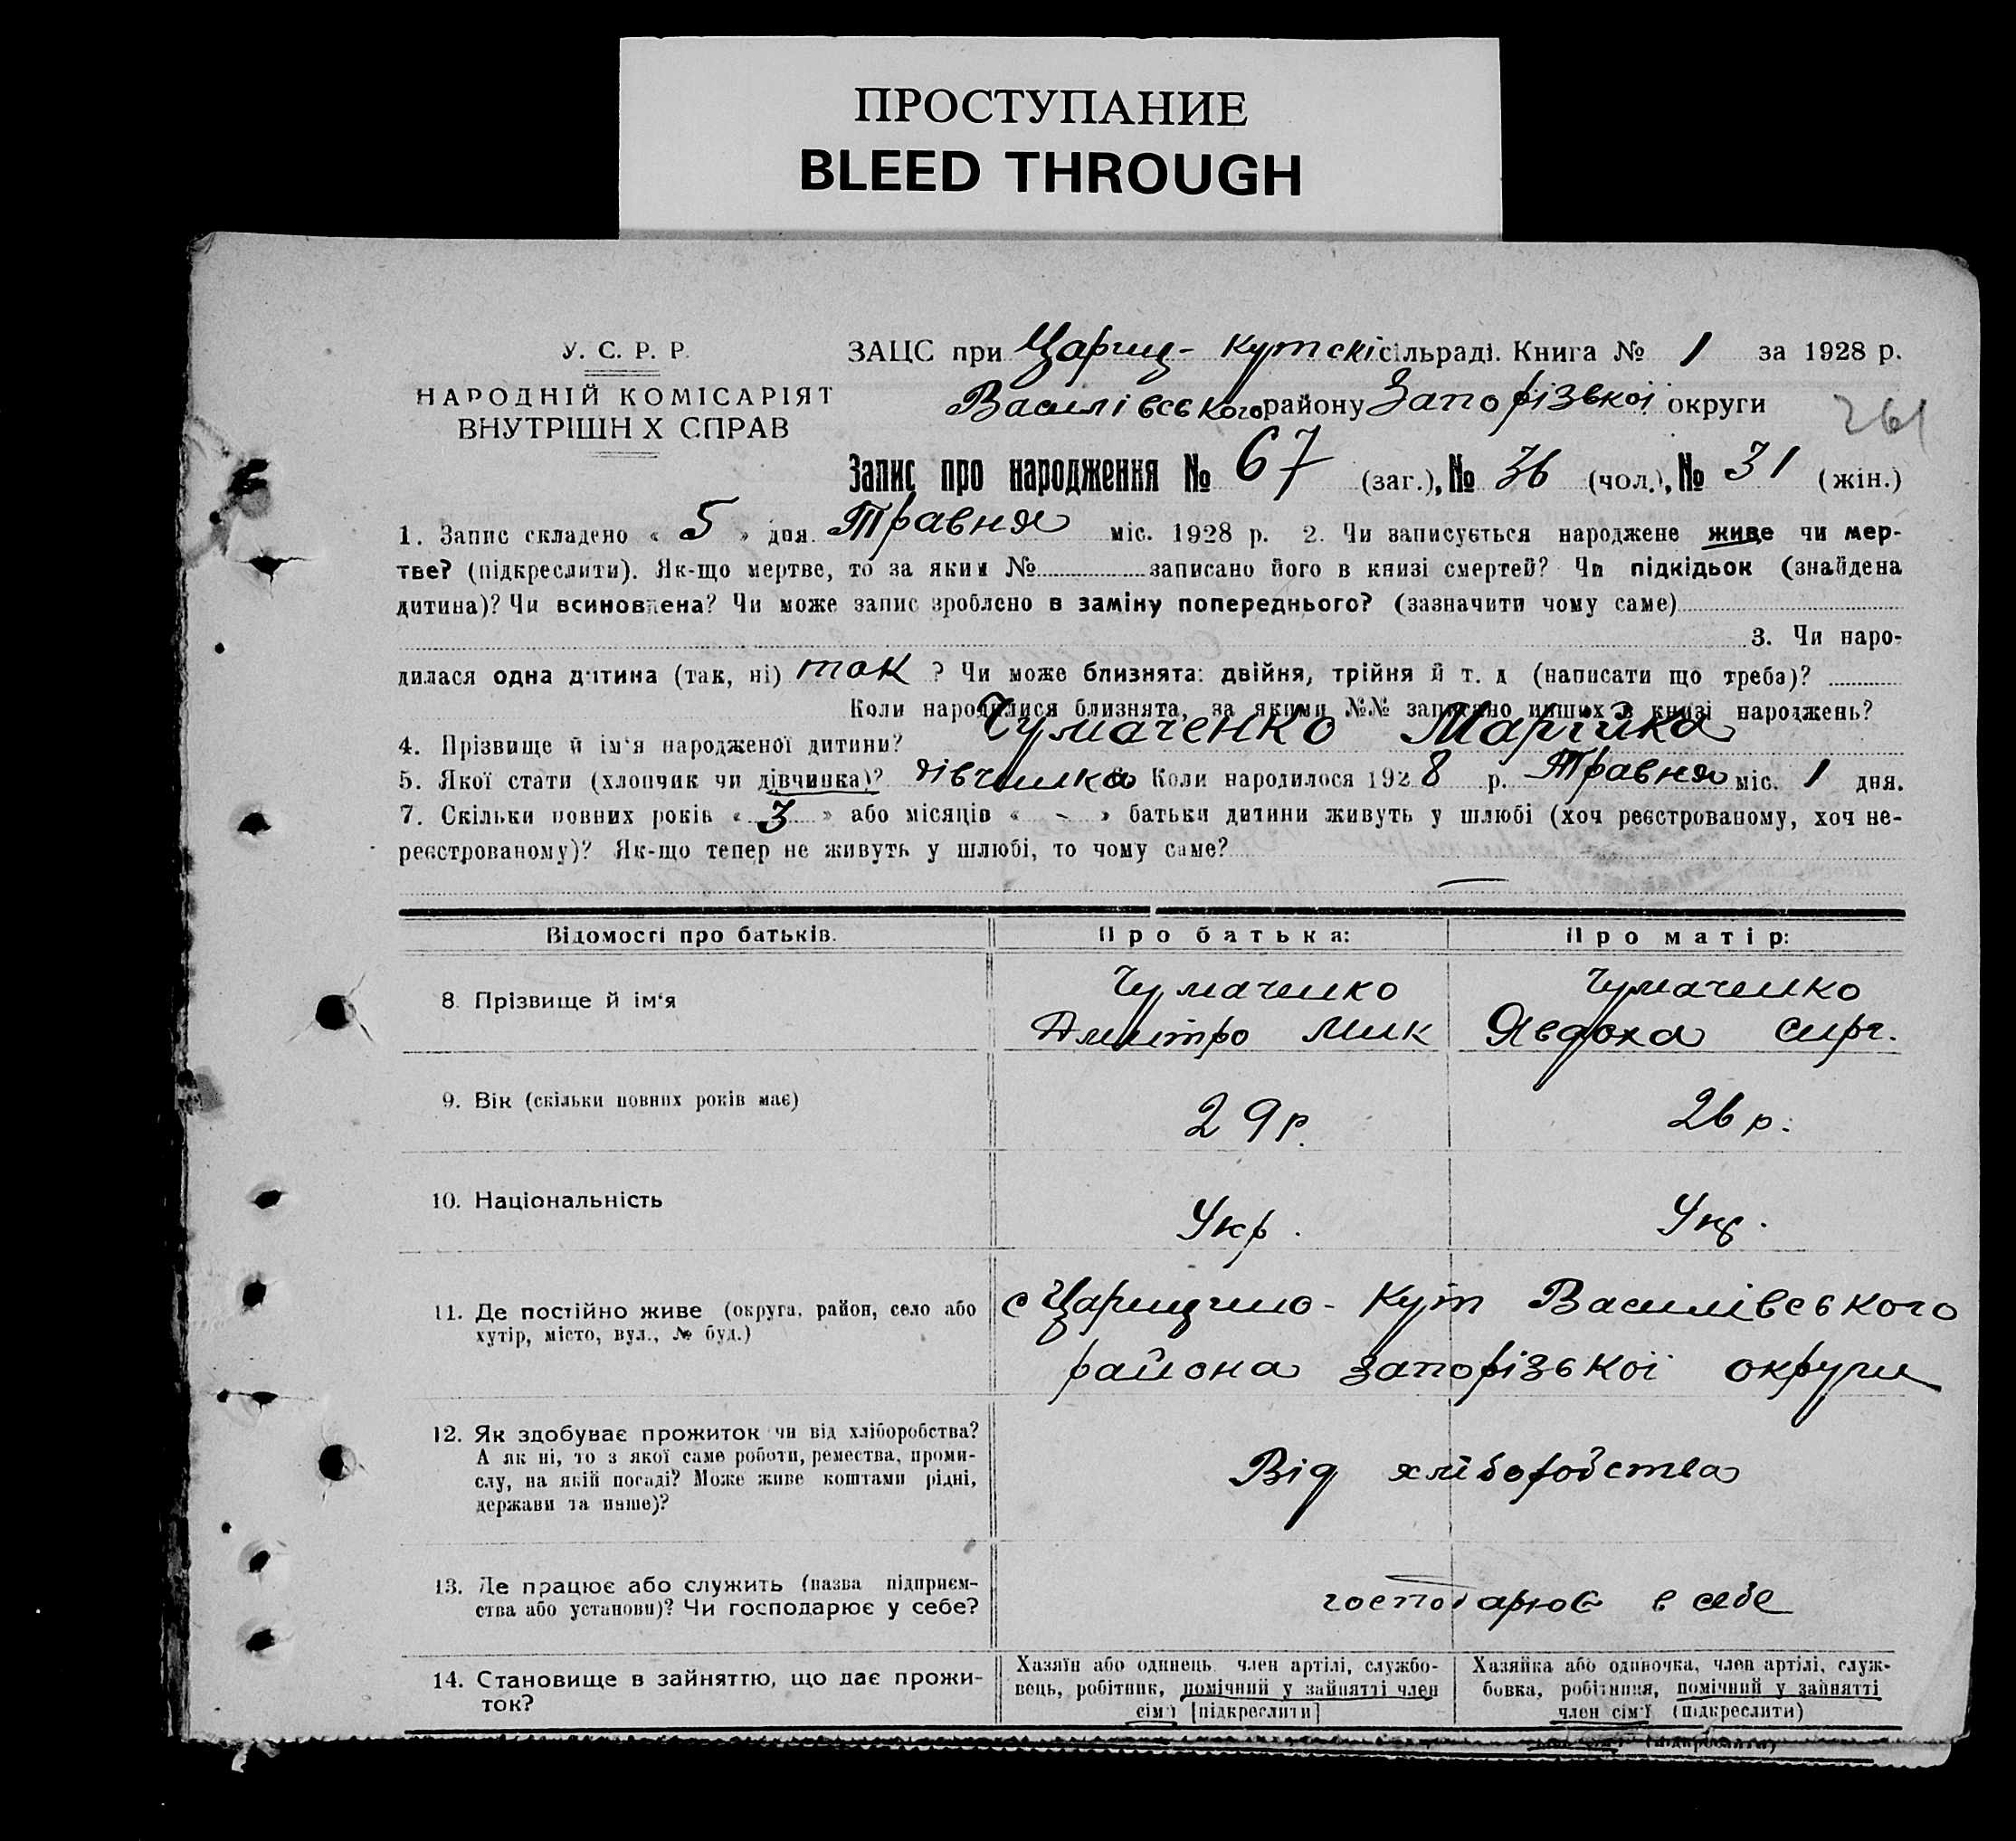 ПРОСТУПАНИЕ
BLEED THROUGH
У. С. Р. Р.
НАРОДНІЙ КОМІСАРІЯТ
ВНУТРІШН Х СПРАВ
ЗАЦС при Цариц-Кутскі сільраді. Книга № 1 за 1928 р.
Василівського району Запорізької округи
261
Запис про народження № 67 (заг.), № 36 (чол.), № 31 (жін.)
1. Запис складено « 5 » дня Травня міс. 1928 р. 2. Чи записується народжене живе чи мер-
тве? (підкреслити). Як-що мертве, то за яким № записано його в книзі смертей? Чи підкідьок (знайдена
дитина)? Чи всиновлена? Чи може запис зроблено в заміну попереднього? (зазначити чому саме)
3. Чи наро-
дилася одна дитина (так, ні) так ? Чи може близнята: двійня, трійня й т. д (написати що треба)?
Коли народилися близнята, за якими №№ записано инших в книзі народжень?
4. Прізвище й ім'я народженої дитини? Чумаченко Марійка
5. Якої статі (хлопчик чи дівчинка)? дівчинка 6. Коли народилося 1928 р. Травня міс. 1 дня.
7. Скільки повних років « 3 » або місяців « - » батьки дитини живуть у шлюбі (хоч реєстрованому, хоч не-
реєстрованому)? Як-що тепер не живуть у шлюбі, то чому саме?
Відомості про батьків. Про батька: Про матір:
8. Прізвище й ім'я Чумаченко Чумаченко
Дмитро Мик Явдоха Сирг.
9. Вік (скільки повних років має) 29 р. 26 р.
10. Національність Укр. Укр.
11. Де постійно живе (округа, район, село або
хутір, місто, вул., № буд.)
с Царицино-Кут Василівського
района Запорізької округи
12. Як здобуває прожиток чи від хліборобства?
А як ні, то з якої саме роботи, ремества, проми-
слу, на якій посаді? Може живе коштами рідні,
держави та инше)?
Від хліборобства
13. Де працює або служить (назва підприєм-
ства або установи)? Чи господарює у себе?
господарює в себе
14. Становище в зайняттю, що дає прожи-
ток?
Хазяїн або одинець, член артілі, службо-
вець, робітник, помічний у зайнятті член
сім'ї [підкреслити]
Хазяйка або одиночка, член артілі, служ-
бовка, робітниця, помічний у зайнятті
член сім'ї (підкреслити)